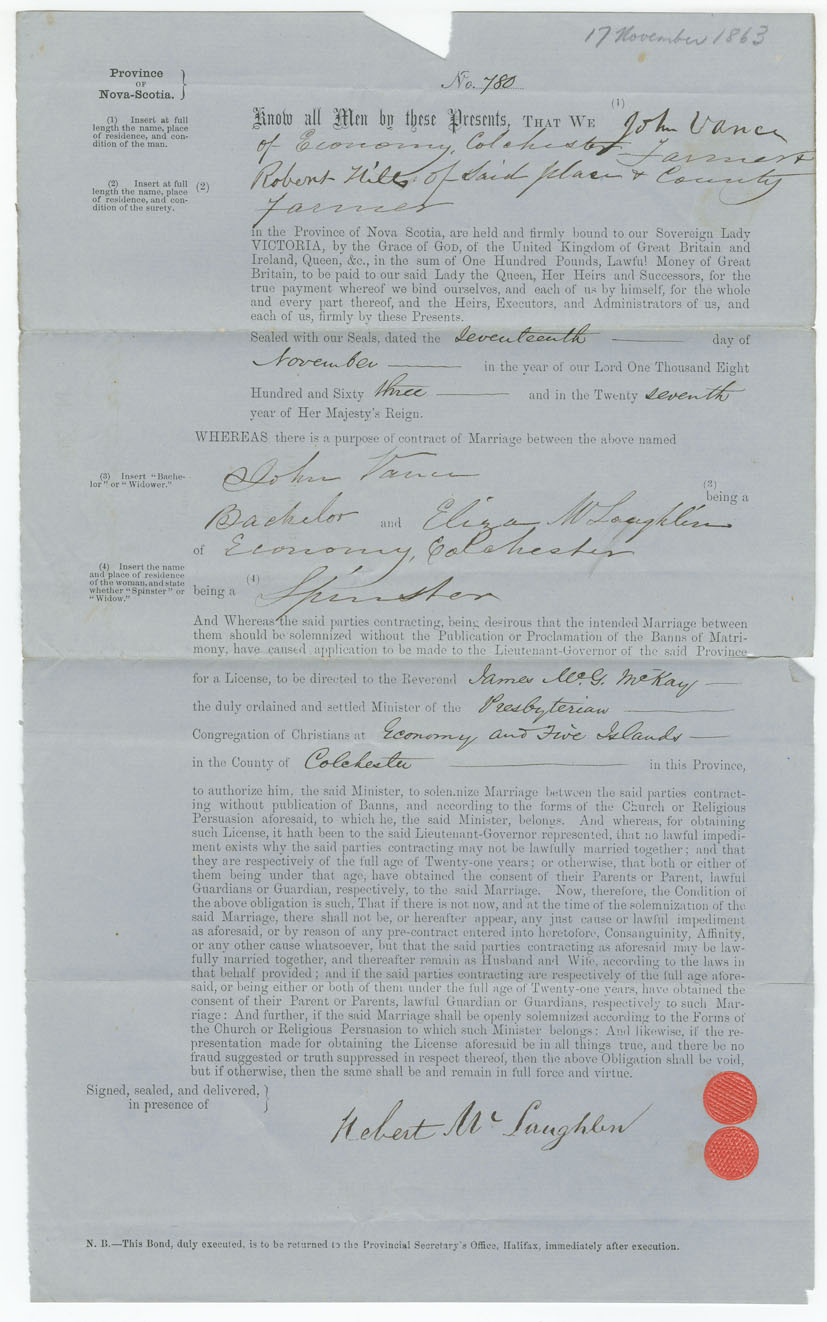 17 November 1863
Province
OF
Nova-Scotia.
No. 780
(1) Insert at full
length the name, place
of residence, and con-
dition of the man.
(1)
Know all Men by these Presents, THAT WE John Vance
of Economy, Colchester Farmer &
(2) Insert at full
length the name, place
of residence, and con-
dition of the surety.
(2)
Robert Hill of Said place & County
Farmer
in the Province of Nova Scotia, are held and firmly bound to our Sovereign Lady
VICTORIA, by the Grace of GOD, of the United Kingdom of Great Britain and
Ireland, Queen, &c., in the sum of One Hundred Pounds, Lawful Money of Great
Britain, to be paid to our said Lady the Queen, Her Heirs and Successors, for the
true payment whereof we bind ourselves, and each of us by himself, for the whole
and every part thereof, and the Heirs, Executors, and Administrators of us, and
each of us, firmly by these Presents.
Sealed with our Seals, dated the Seventeenth day of
November in the year of our Lord One Thousand Eight
Hundred and Sixty three and in the Twenty seventh
year of Her Majesty's Reign.
WHEREAS there is a purpose of contract of Marriage between the above named
(3) Insert "Bache-
lor" or "Widower."
John Vance
(3)
being a
Bachelor and Eliza McLaughlin
of Economy, Colchester
(4) Insert the name
and place of residence
of the woman, and state
whether "Spinster" or
"Widow."
(4)
being a Spinster
And Whereas the said parties contracting, being desirous that the intended Marriage between
them should be solemnized without the Publication or Proclamation of the Banns of Matri-
mony, have caused application to be made to the Lieutenant-Governor of the said Province
for a License, to be directed to the Reverend James McG. McKay
the duly ordained and settled Minister of the Presbyterian
Congregation of Christians at Economy and Five Islands
in the County of Colchester in this Province,
to authorize him, the said Minister, to solemnize Marriage between the said parties contract-
ing without publication of Banns, and according to the forms of the Church or Religious
Persuasion aforesaid, to which he, the said Minister, belongs. And whereas, for obtaining
such License, it hath been to the said Lieutenant-Governor represented, that no lawful impedi-
ment exists why the said parties contracting may not be lawfully married together; and that
they are respectively of the full age of Twenty-one years; or otherwise, that both or either of
them being under that age, have obtained the consent of their Parents or Parent, lawful
Guardians or Guardian, respectively, to the said Marriage. Now, therefore, the Condition of
the above obligation is such, That if there is not now, and at the time of the solemnization of the
said Marriage, there shall not be, or hereafter appear, any just cause or lawful impediment
as aforesaid, or by reason of any pre-contract entered into heretofore, Consanguinity, Affinity,
or any other cause whatsoever, but that the said parties contracting as aforesaid may be law-
fully married together, and thereafter remain as Husband and Wife, according to the laws in
that behalf provided; and if the said parties contracting are respectively of the full age afore-
said, or being either or both of them under the full age of Twenty-one years, have obtained the
consent of their Parent or Parents, lawful Guardian or Guardians, respectively to such Mar-
riage: And further, if the said Marriage shall be openly solemnized according to the Forms of
the Church or Religious Persuasion to which such Minister belongs: And likewise, if the re-
presentation made for obtaining the License aforesaid be in all things true, and there be no
fraud suggested or truth suppressed in respect thereof, then the above Obligation shall be void,
but if otherwise, then the same shall be and remain in full force and virtue.
Signed, sealed, and delivered,
in presence of
Hebert McLaughlen
N. B.—This Bond, duly executed, is to be returned to the Provincial Secretary's Office, Halifax, immediately after execution.